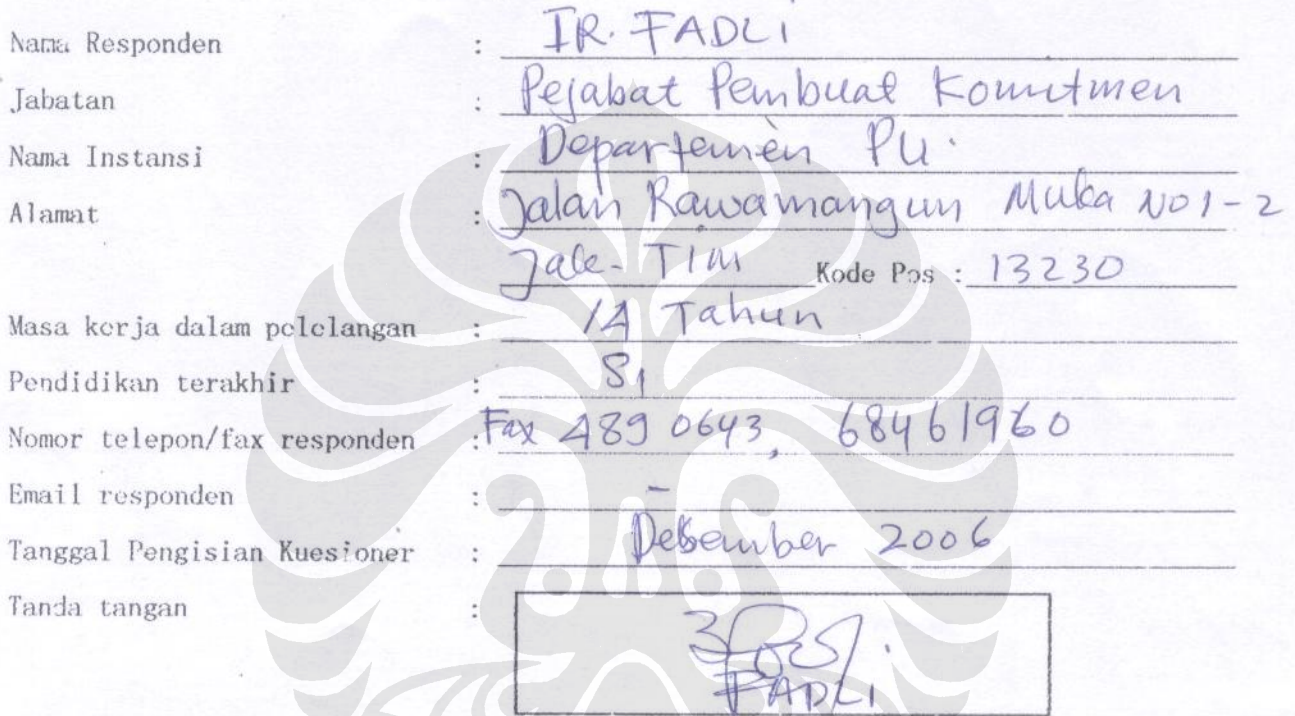 Nama Responden : IR. FADLI
Jabatan : Pejabat Pembuat Komitmen
Nama Instansi : Departemen PU.
Alamat : Jalan Rawamangun Muka NO 1-2
Jak-Tim Kode Pos : 13230
Masa kerja dalam pelelangan : 14 Tahun
Pendidikan terakhir : S1
Nomor telepon/fax responden : Fax 489 0643, 68461960
Email responden : -
Tanggal Pengisian Kuesioner : Desember 2006
Tanda tangan :
FADLI